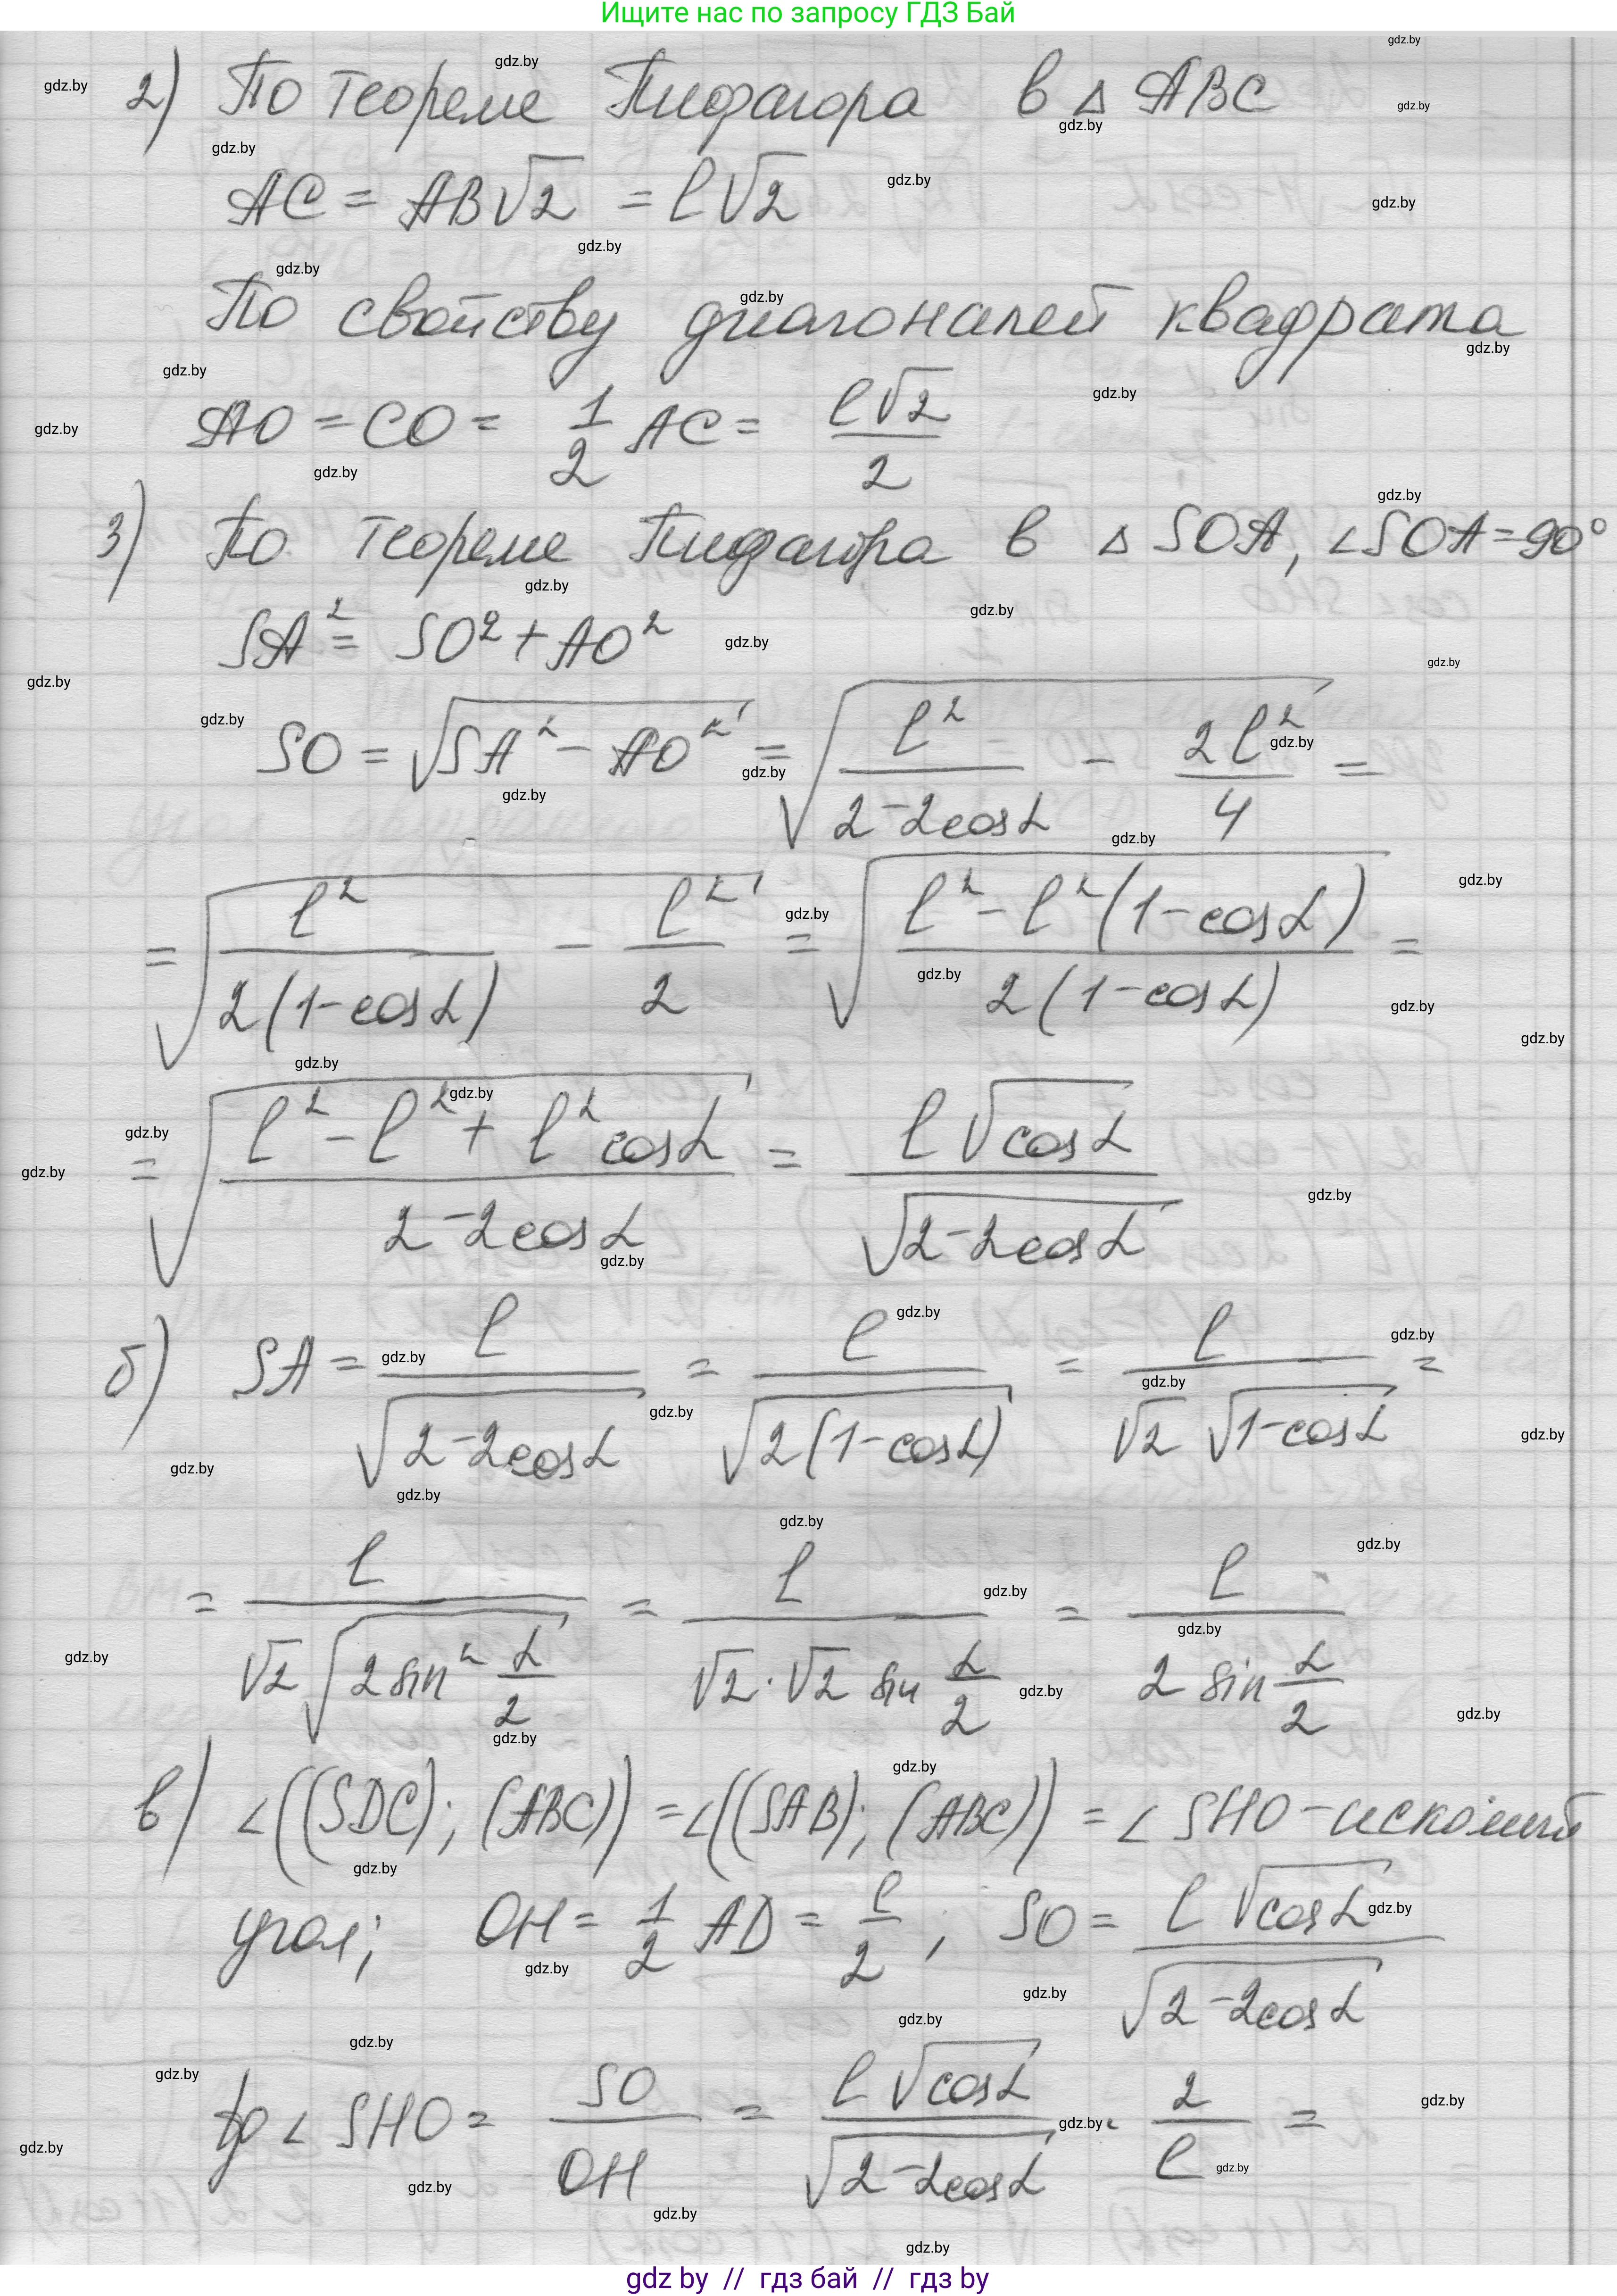 Ищите нас по запросу ГДЗ Бай
2) По теореме Пифагора в △ ABC
AC = AB√2 = l√2
По свойству диагоналей квадрата
AO = CO = 1/2 AC = l√2/2
3) По теореме Пифагора в △ SOA, ∠SOA = 90°
SA² = SO² + AO²
SO = √(SA² - AO²) = √(l²/(2-2cosα) - 2l²/4) =
= √(l²/(2(1-cosα)) - l²/2) = √((l² - l²(1-cosα))/(2(1-cosα))) =
= √((l² - l² + l²cosα)/(2-2cosα)) = l√cosα/√(2-2cosα)
б) SA = l/√(2-2cosα) = l/√(2(1-cosα)) = l/(√2 √(1-cosα)) =
= l/(√2 √(2 sin² α/2)) = l/(√2·√2 sin α/2) = l/(2 sin α/2)
в) ∠((SDC); (ABC)) = ∠((SAB); (ABC)) = ∠SHO - искомый
угол; OH = 1/2 AD = l/2, SO = l√cosα/√(2-2cosα)
tg ∠SHO = SO/OH = l√cosα/√(2-2cosα) · 2/l =
gdz by // гдз бай // гдз by